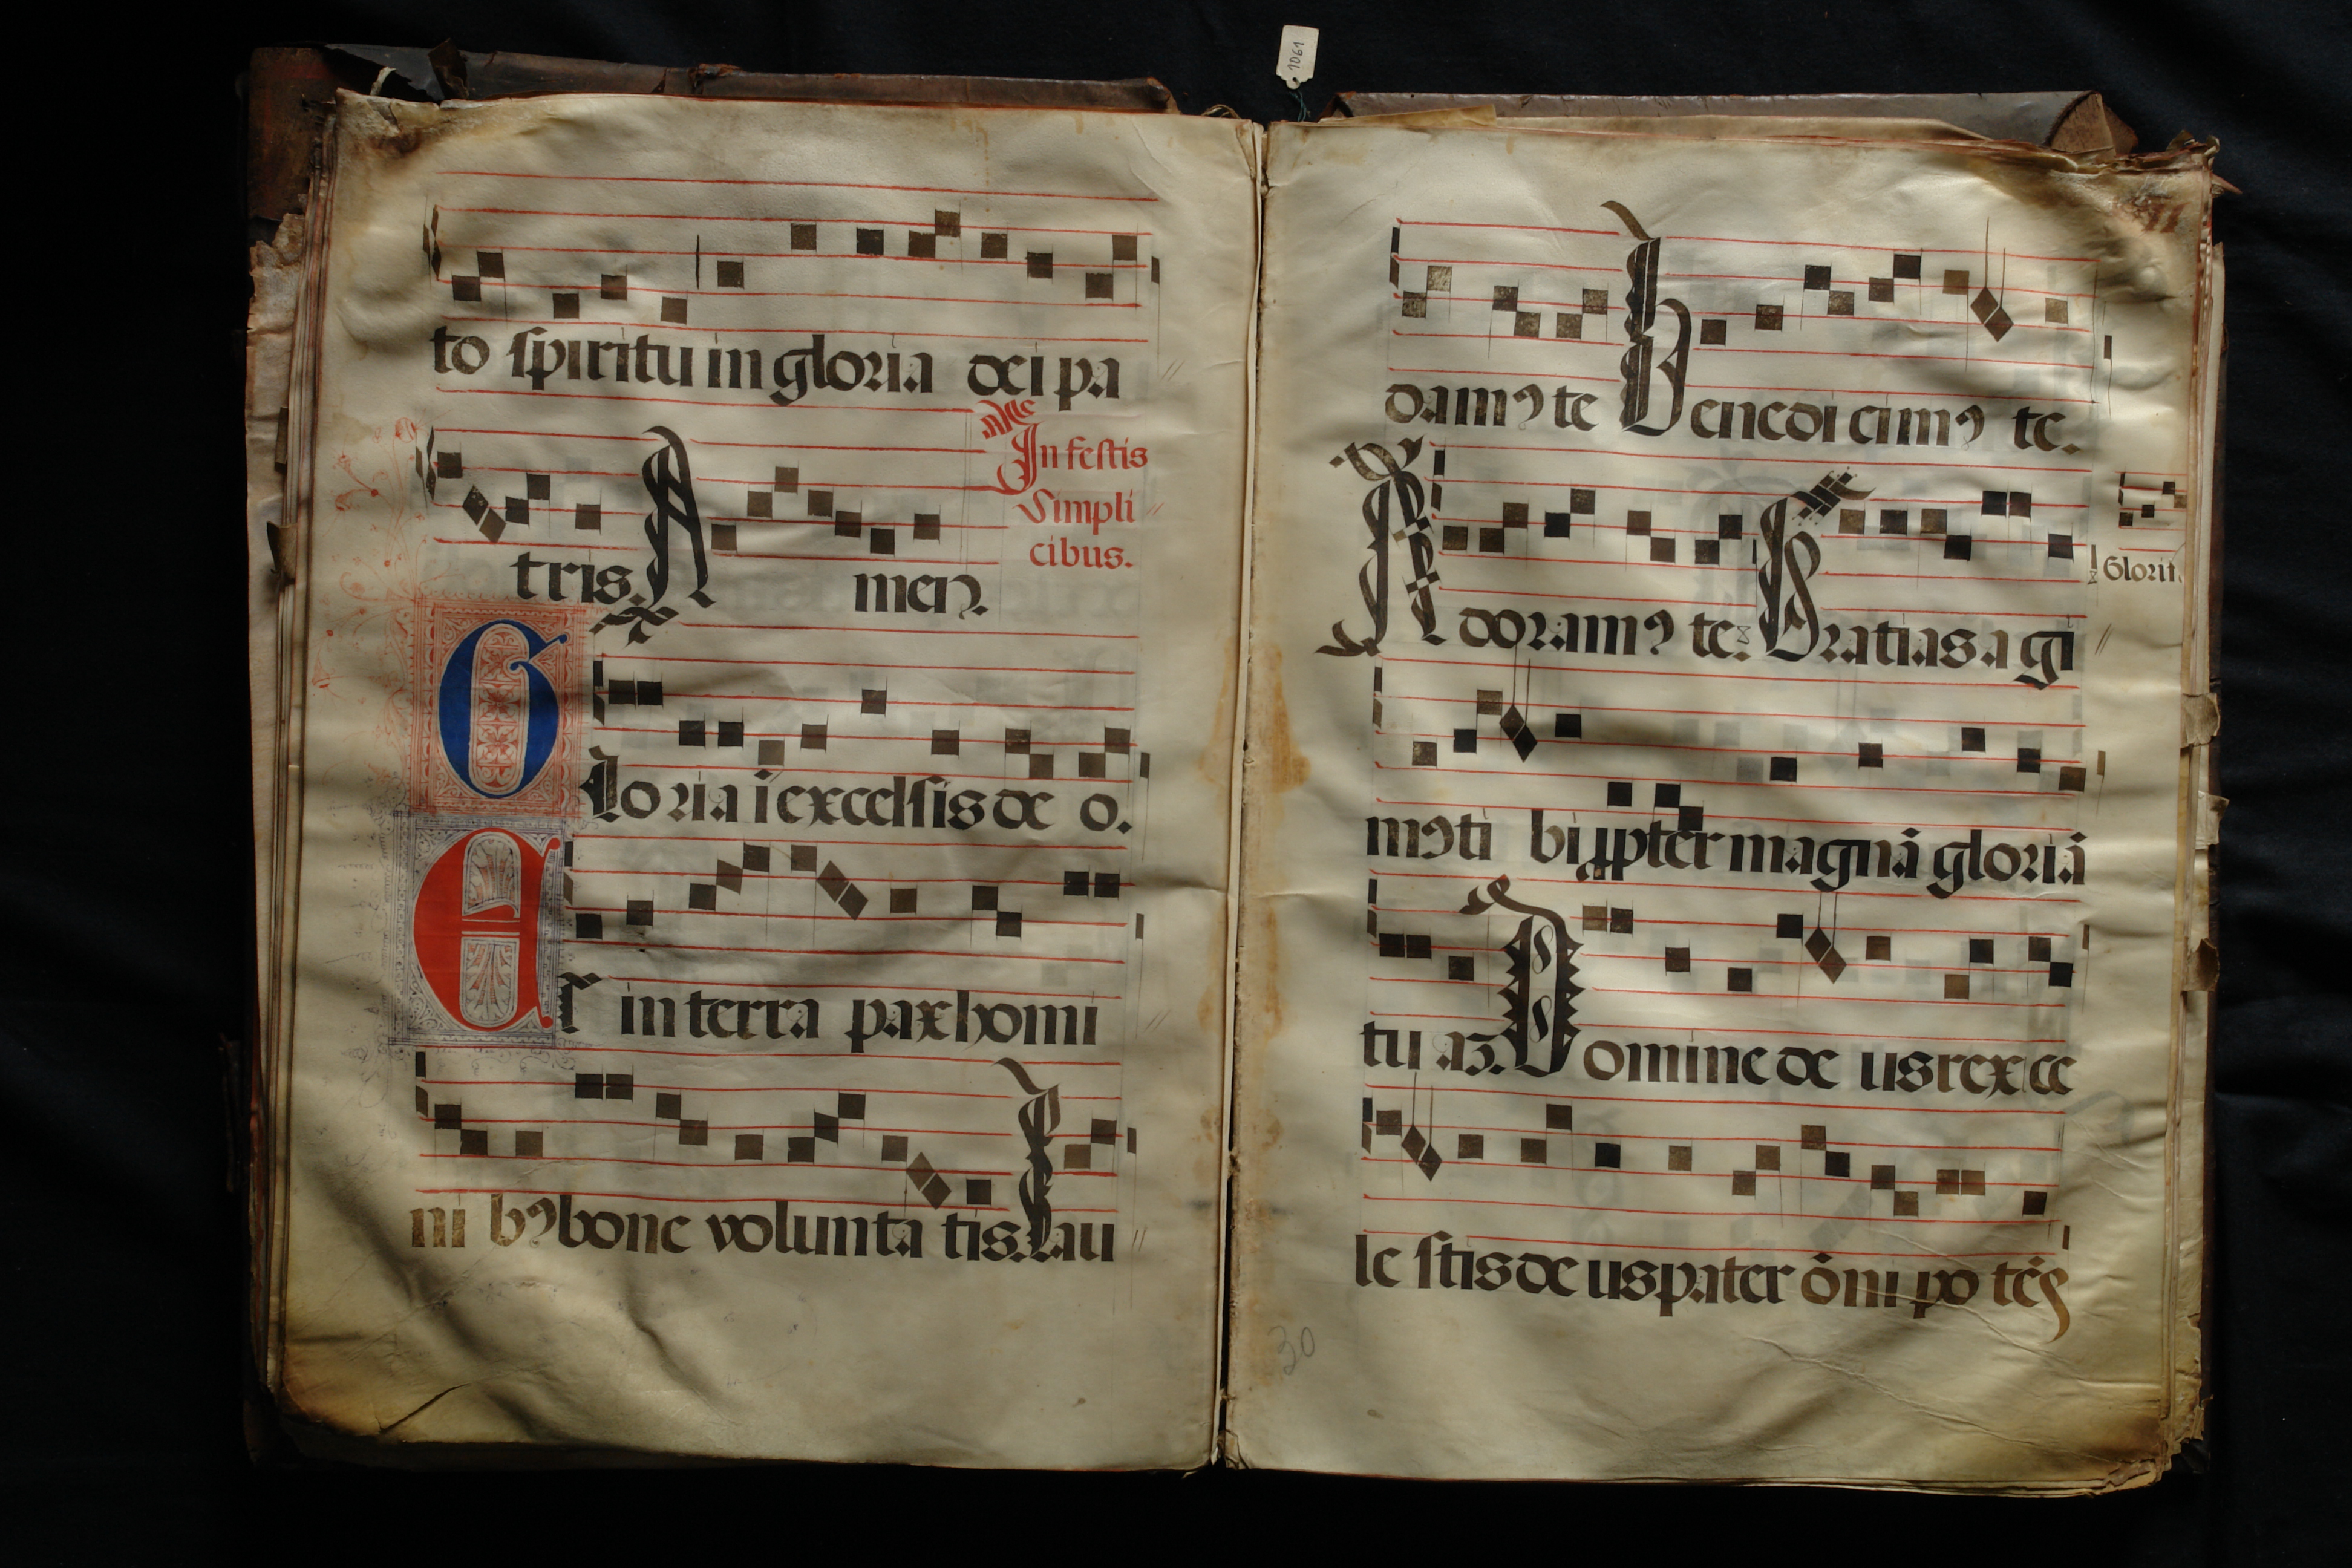 1061
to spiritu in gloria dei pa
In festis
simpli
cibus.
tris. Amen.
Gloria ī excelsis de o.
Et in terra pax homi
ni bꝰ bone volunta tis. Lau
damꝰ te Benedicimꝰ te.
Adoramꝰ te: Gratias a gi
Glorif.
mꝰ ti bi ꝓpter magnā gloriā
tu aꝫ. Domine de us rex ce
le stis de us pater ōni po tēs
30